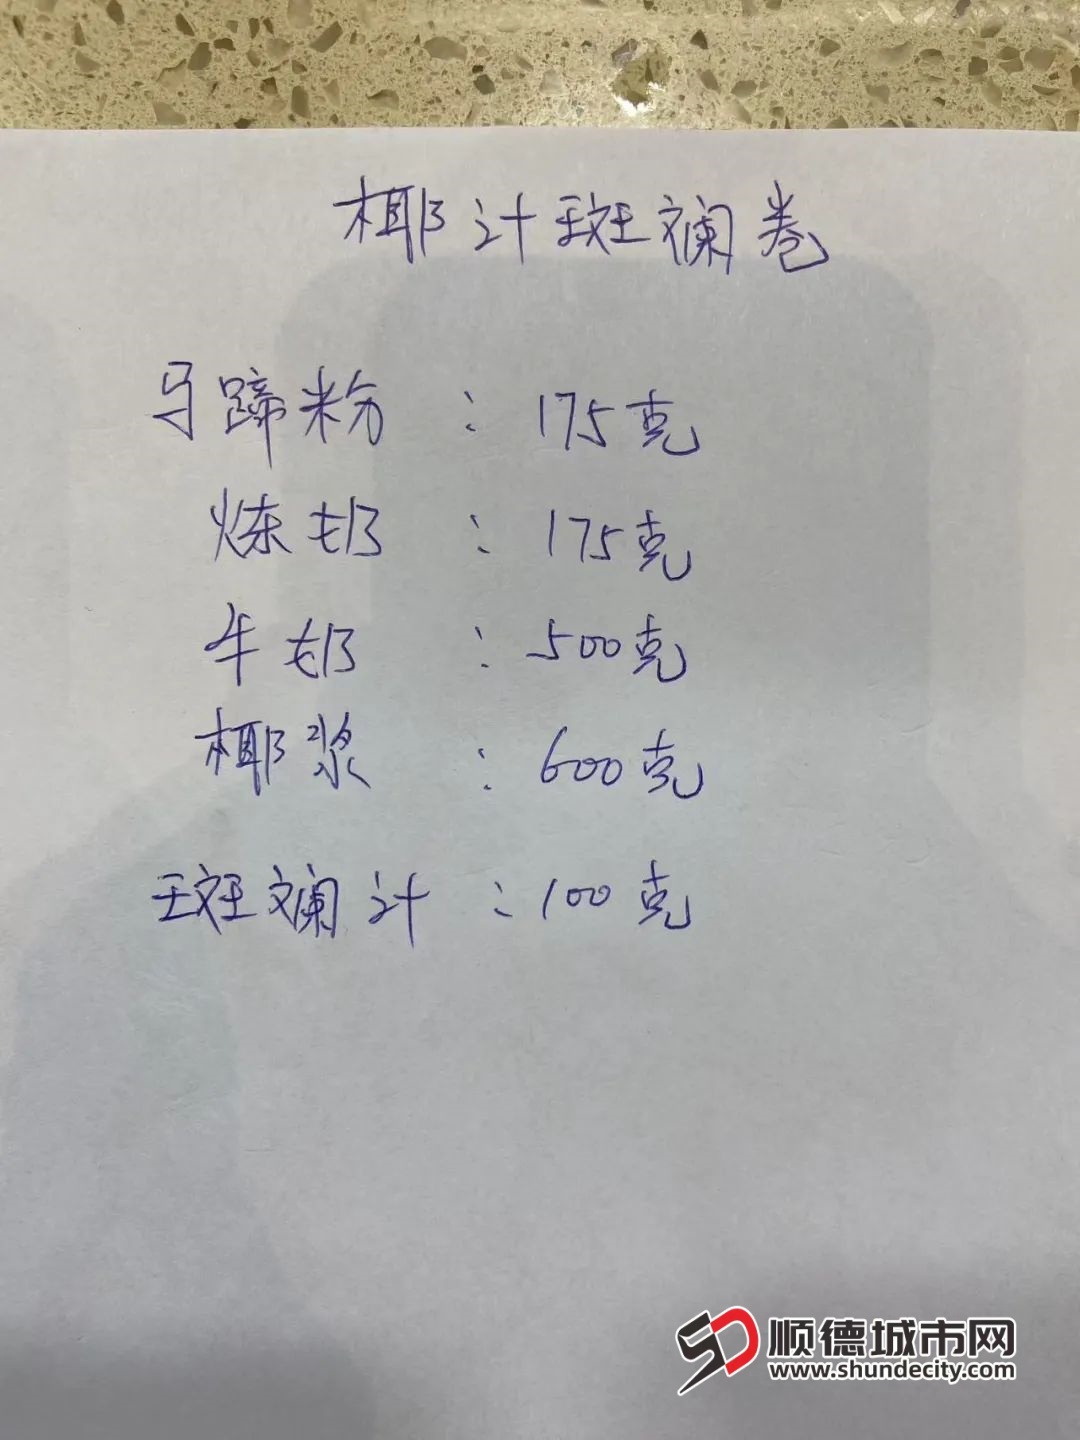 椰汁斑斓卷
马蹄粉：175克
炼奶：175克
牛奶：500克
椰浆：600克
斑斓汁：100克
顺德城市网
www.shundecity.com